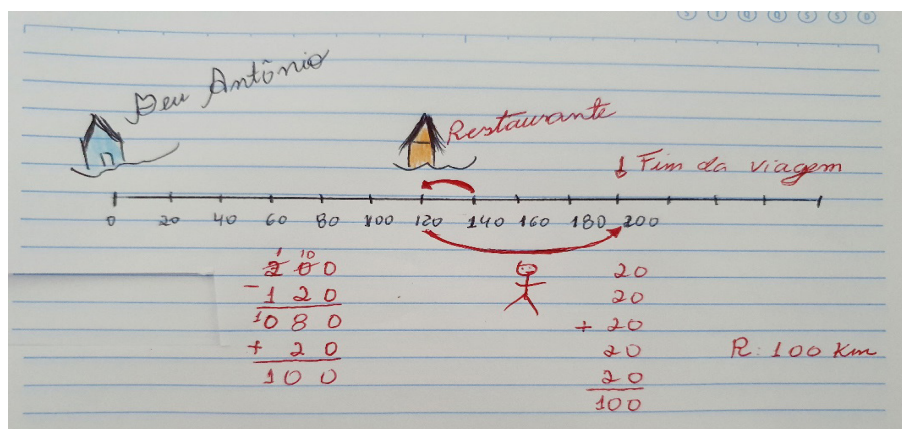 S T Q Q S S D
Seu Antônio
Restaurante
Fim da viagem
0 20 40 60 80 100 120 140 160 180 200
1 10
2 0 0
- 1 2 0
1
0 8 0
+ 2 0
1 0 0
20
20
+ 20
20
20
100
R: 100 Km